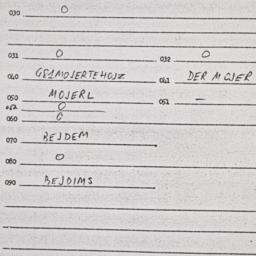 030 O
031 O 032 O
040 GSIMOJERTEHOJZ 041 DER MOJER
050 MOJERL 051 –
052 O
060 O
070 BEJDEM
080 O
090 BEJDIMS